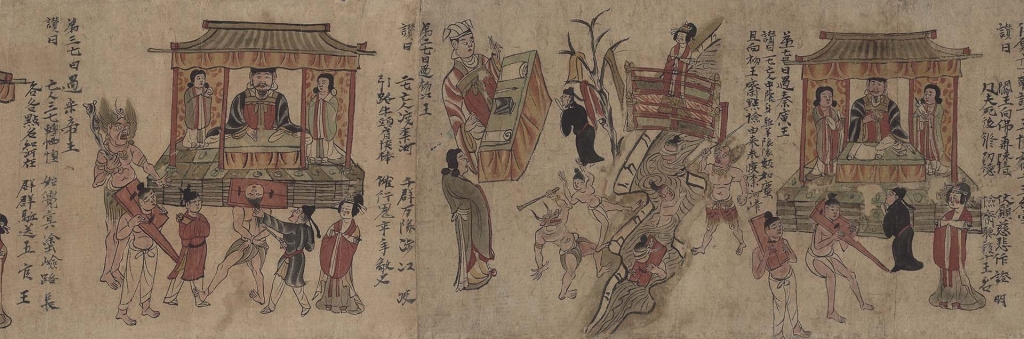 讃曰
閻王向佛再陳情 伏願慈悲作證明
凡夫死後修功德
第一七日過秦廣王
讃曰 一七亡人中陰身 駈羊隊隊數如塵
且向初王齋點檢 由來未渡奈河津
第二七日過初江王
讃曰
二七亡人渡奈河 千群万隊涉江波
引路牛頭肩俠棒 催行鬼卒手擎叉
第三七日過宋帝王
讃曰
亡人三七轉恓惶 始覺冥途嶮路長
各各點名知所在 群群駈送五官王